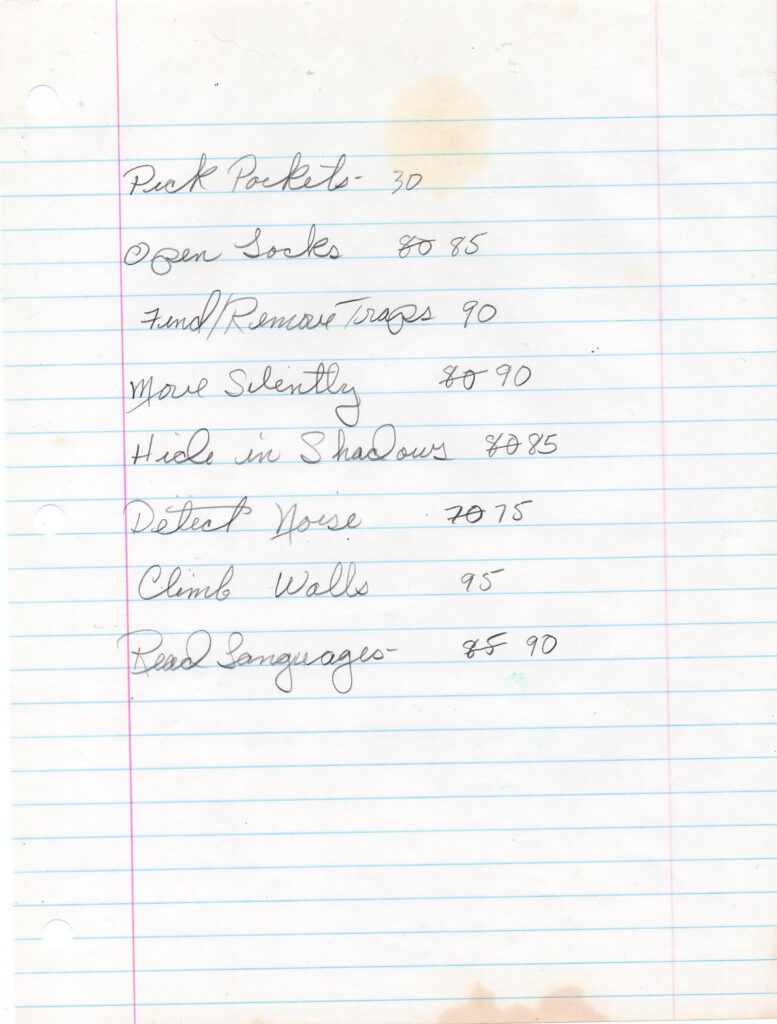 Pick Pockets- 30
Open Locks 80 85
Find/Remove Traps 90
Move Silently 80 90
Hide in Shadows 80 85
Detect Noise 70 75
Climb Walls 95
Read Languages- 85 90